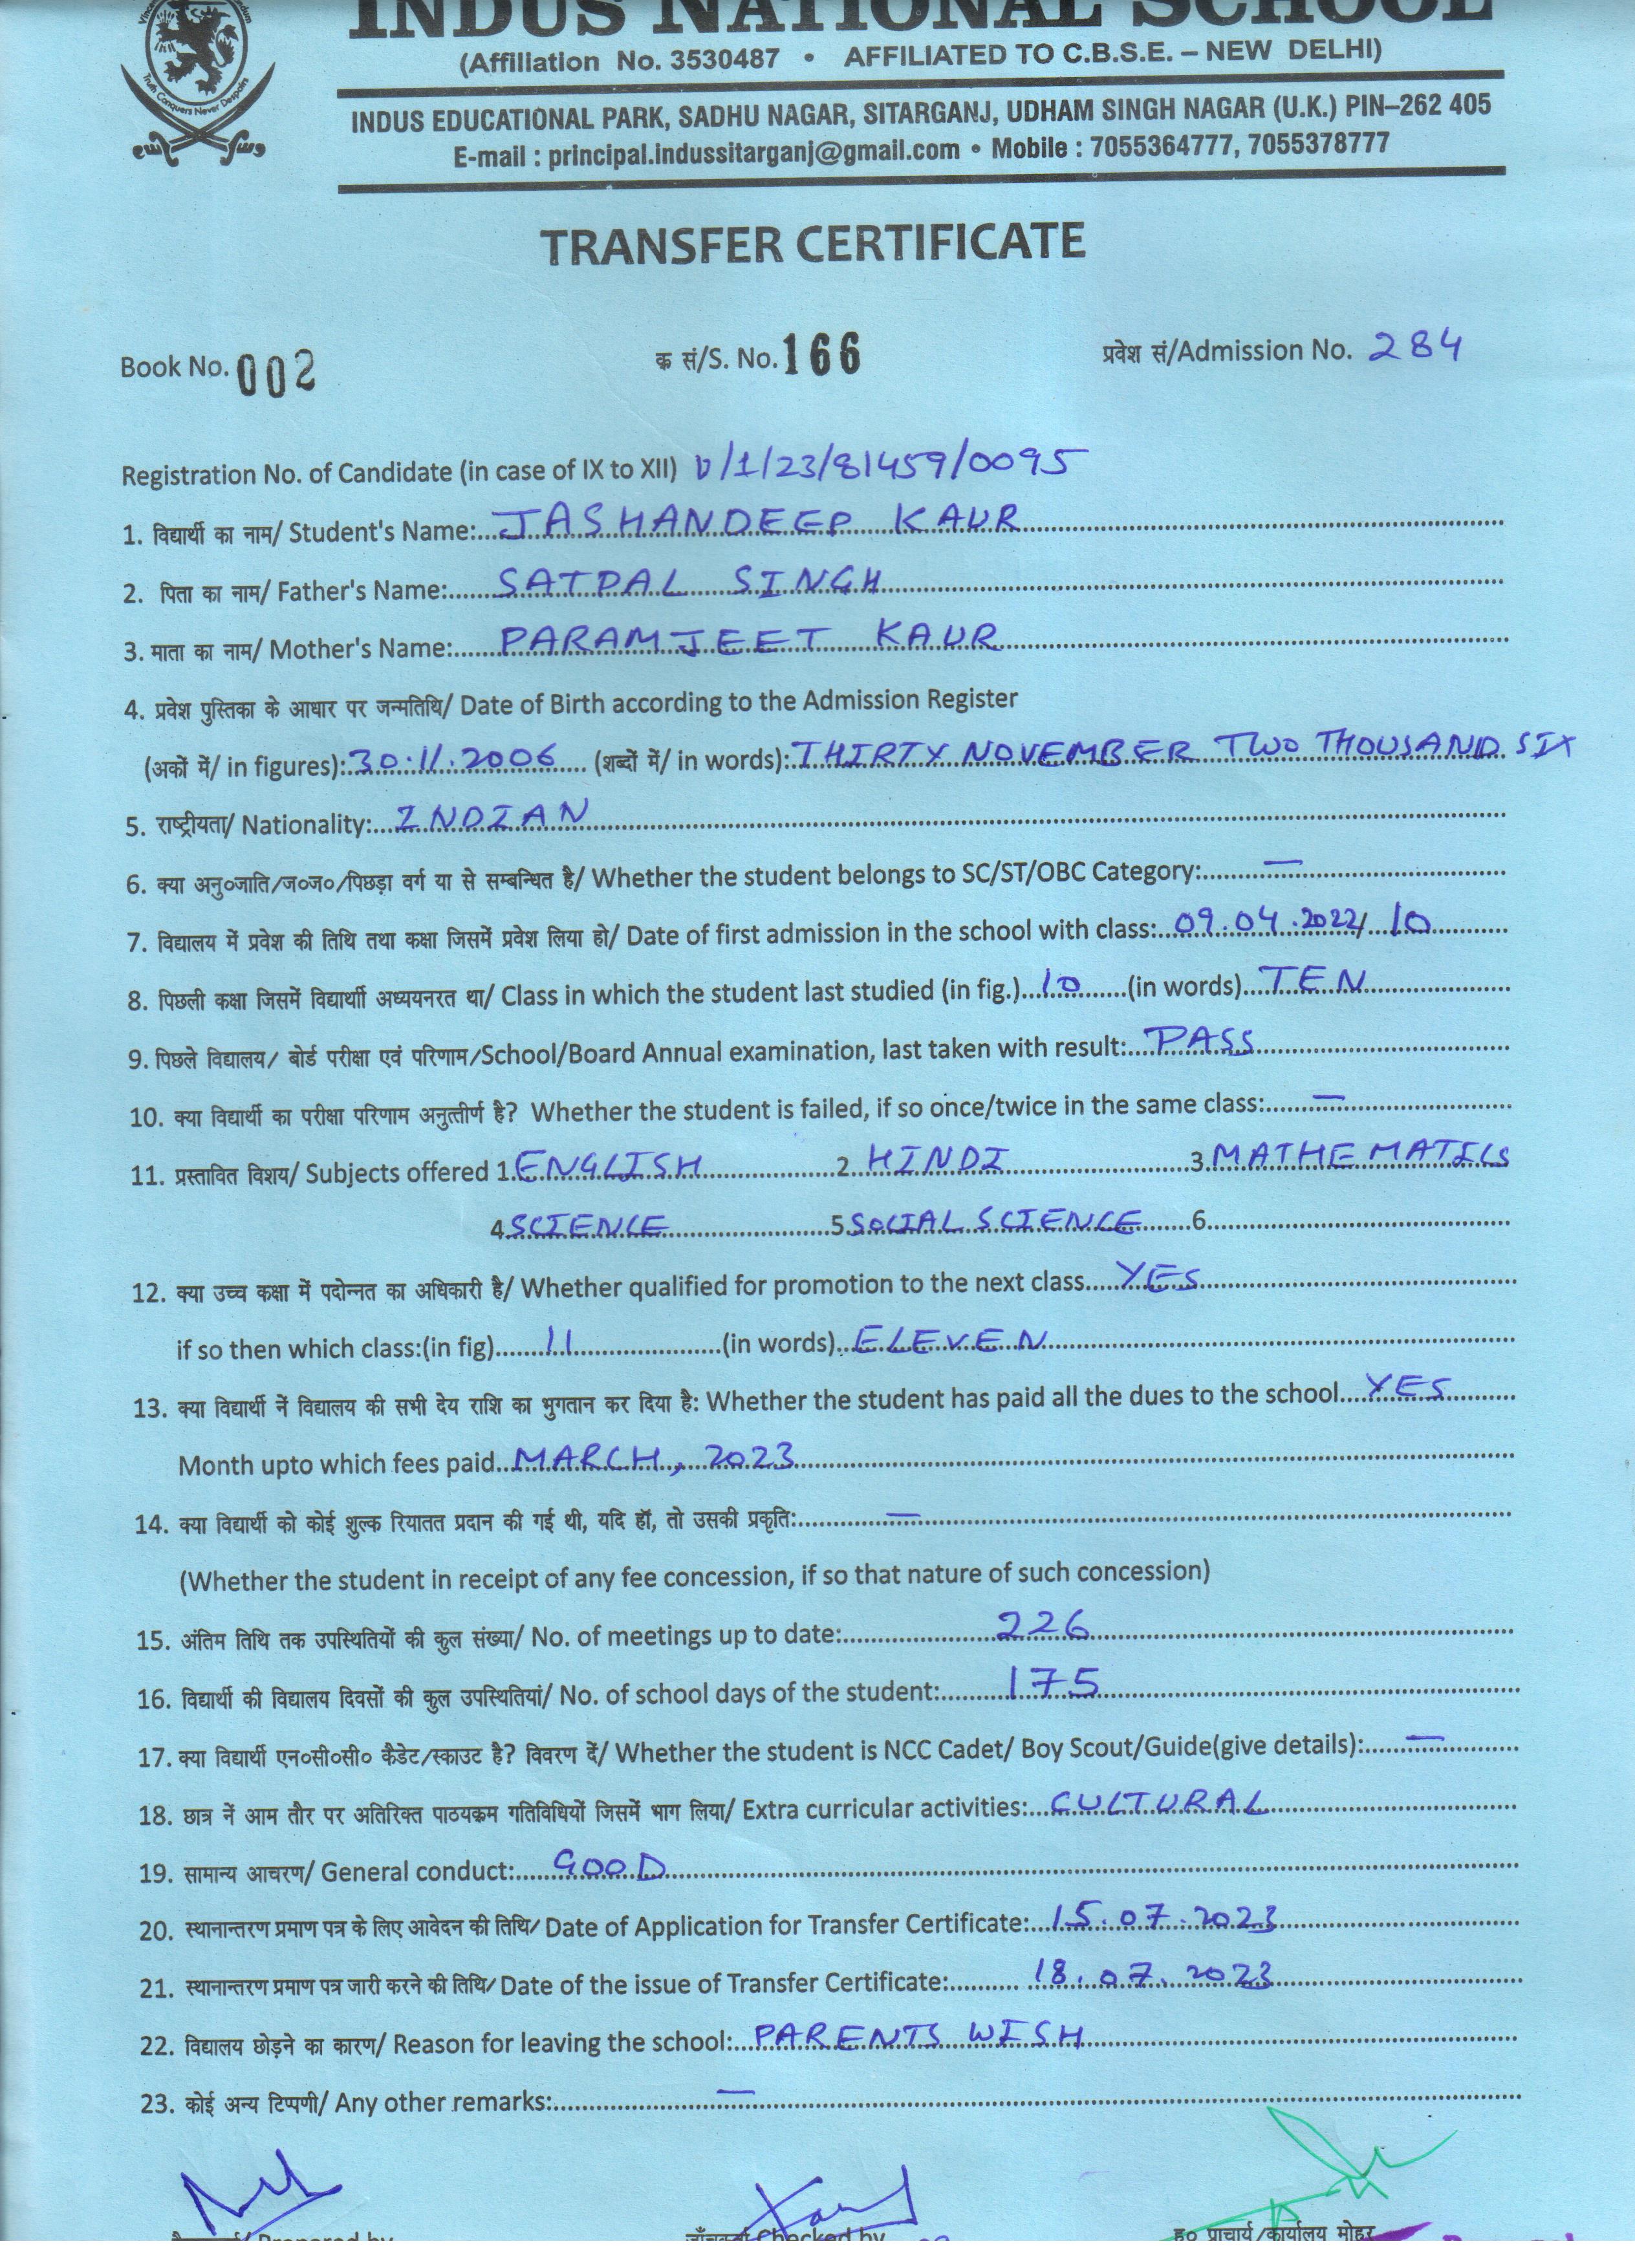 INDUS NATIONAL SCHOOL
(Affiliation No. 3530487 • AFFILIATED TO C.B.S.E. – NEW DELHI)
Truth Conquers Never Despairs
INDUS EDUCATIONAL PARK, SADHU NAGAR, SITARGANJ, UDHAM SINGH NAGAR (U.K.) PIN–262 405
E-mail : principal.indussitarganj@gmail.com • Mobile : 7055364777, 7055378777
TRANSFER CERTIFICATE
Book No. 002 क सं/S. No. 166 प्रवेश सं/Admission No. 284
Registration No. of Candidate (in case of IX to XII) /1/23/81459/0095
1. विद्यार्थी का नाम/ Student's Name: JASHANDEEP KAUR
2. पिता का नाम/ Father's Name: SATPAL SINGH
3. माता का नाम/ Mother's Name: PARAMJEET KAUR
4. प्रवेश पुस्तिका के आधार पर जन्मतिथि/ Date of Birth according to the Admission Register
(अकों में/ in figures): 30.11.2006 (शब्दों में/ in words): THIRTY NOVEMBER TWO THOUSAND SIX
5. राष्ट्रीयता/ Nationality: INDIAN
6. क्या अनु०जाति/ज०ज०/पिछड़ा वर्ग या से सम्बन्धित है/ Whether the student belongs to SC/ST/OBC Category: —
7. विद्यालय में प्रवेश की तिथि तथा कक्षा जिसमें प्रवेश लिया हो/ Date of first admission in the school with class: 09.04.2022/ 10
8. पिछली कक्षा जिसमें विद्यार्थाी अध्ययनरत था/ Class in which the student last studied (in fig.) 10 (in words) TEN
9. पिछले विद्यालय/ बोर्ड परीक्षा एवं परिणाम/School/Board Annual examination, last taken with result: PASS
10. क्या विद्यार्थी का परीक्षा परिणाम अनुत्तीर्ण है? Whether the student is failed, if so once/twice in the same class: —
11. प्रस्तावित विशय/ Subjects offered 1. ENGLISH 2. HINDI 3. MATHEMATICS
4. SCIENCE 5. SOCIAL SCIENCE 6.
12. क्या उच्च कक्षा में पदोन्नत का अधिकारी है/ Whether qualified for promotion to the next class YES
if so then which class:(in fig) 11 (in words) ELEVEN
13. क्या विद्यार्थी नें विद्यालय की सभी देय राशि का भुगतान कर दिया है: Whether the student has paid all the dues to the school YES
Month upto which fees paid MARCH, 2023
14. क्या विद्यार्थी को कोई शुल्क रियातत प्रदान की गई थी, यदि हॉ, तो उसकी प्रकृति: —
(Whether the student in receipt of any fee concession, if so that nature of such concession)
15. अंतिम तिथि तक उपस्थितियों की कुल संख्या/ No. of meetings up to date: 226
16. विद्यार्थी की विद्यालय दिवसों की कुल उपस्थितियां/ No. of school days of the student: 175
17. क्या विद्यार्थी एन०सी०सी० कैडेट/स्काउट है? विवरण दें/ Whether the student is NCC Cadet/ Boy Scout/Guide(give details): —
18. छात्र नें आम तौर पर अतिरिक्त पाठयक्रम गतिविधियों जिसमें भाग लिया/ Extra curricular activities: CULTURAL
19. सामान्य आचरण/ General conduct: GOOD
20. स्थानान्तरण प्रमाण पत्र के लिए आवेदन की तिथि/ Date of Application for Transfer Certificate: 15.07.2023
21. स्थानान्तरण प्रमाण पत्र जारी करने की तिथि/ Date of the issue of Transfer Certificate: 18.07.2023
22. विद्यालय छोड़ने का कारण/ Reason for leaving the school: PARENTS WISH
23. कोई अन्य टिप्पणी/ Any other remarks: —
Prepared by जाँचकर्ता Checked by ह० प्राचार्य/कार्यालय मोहर